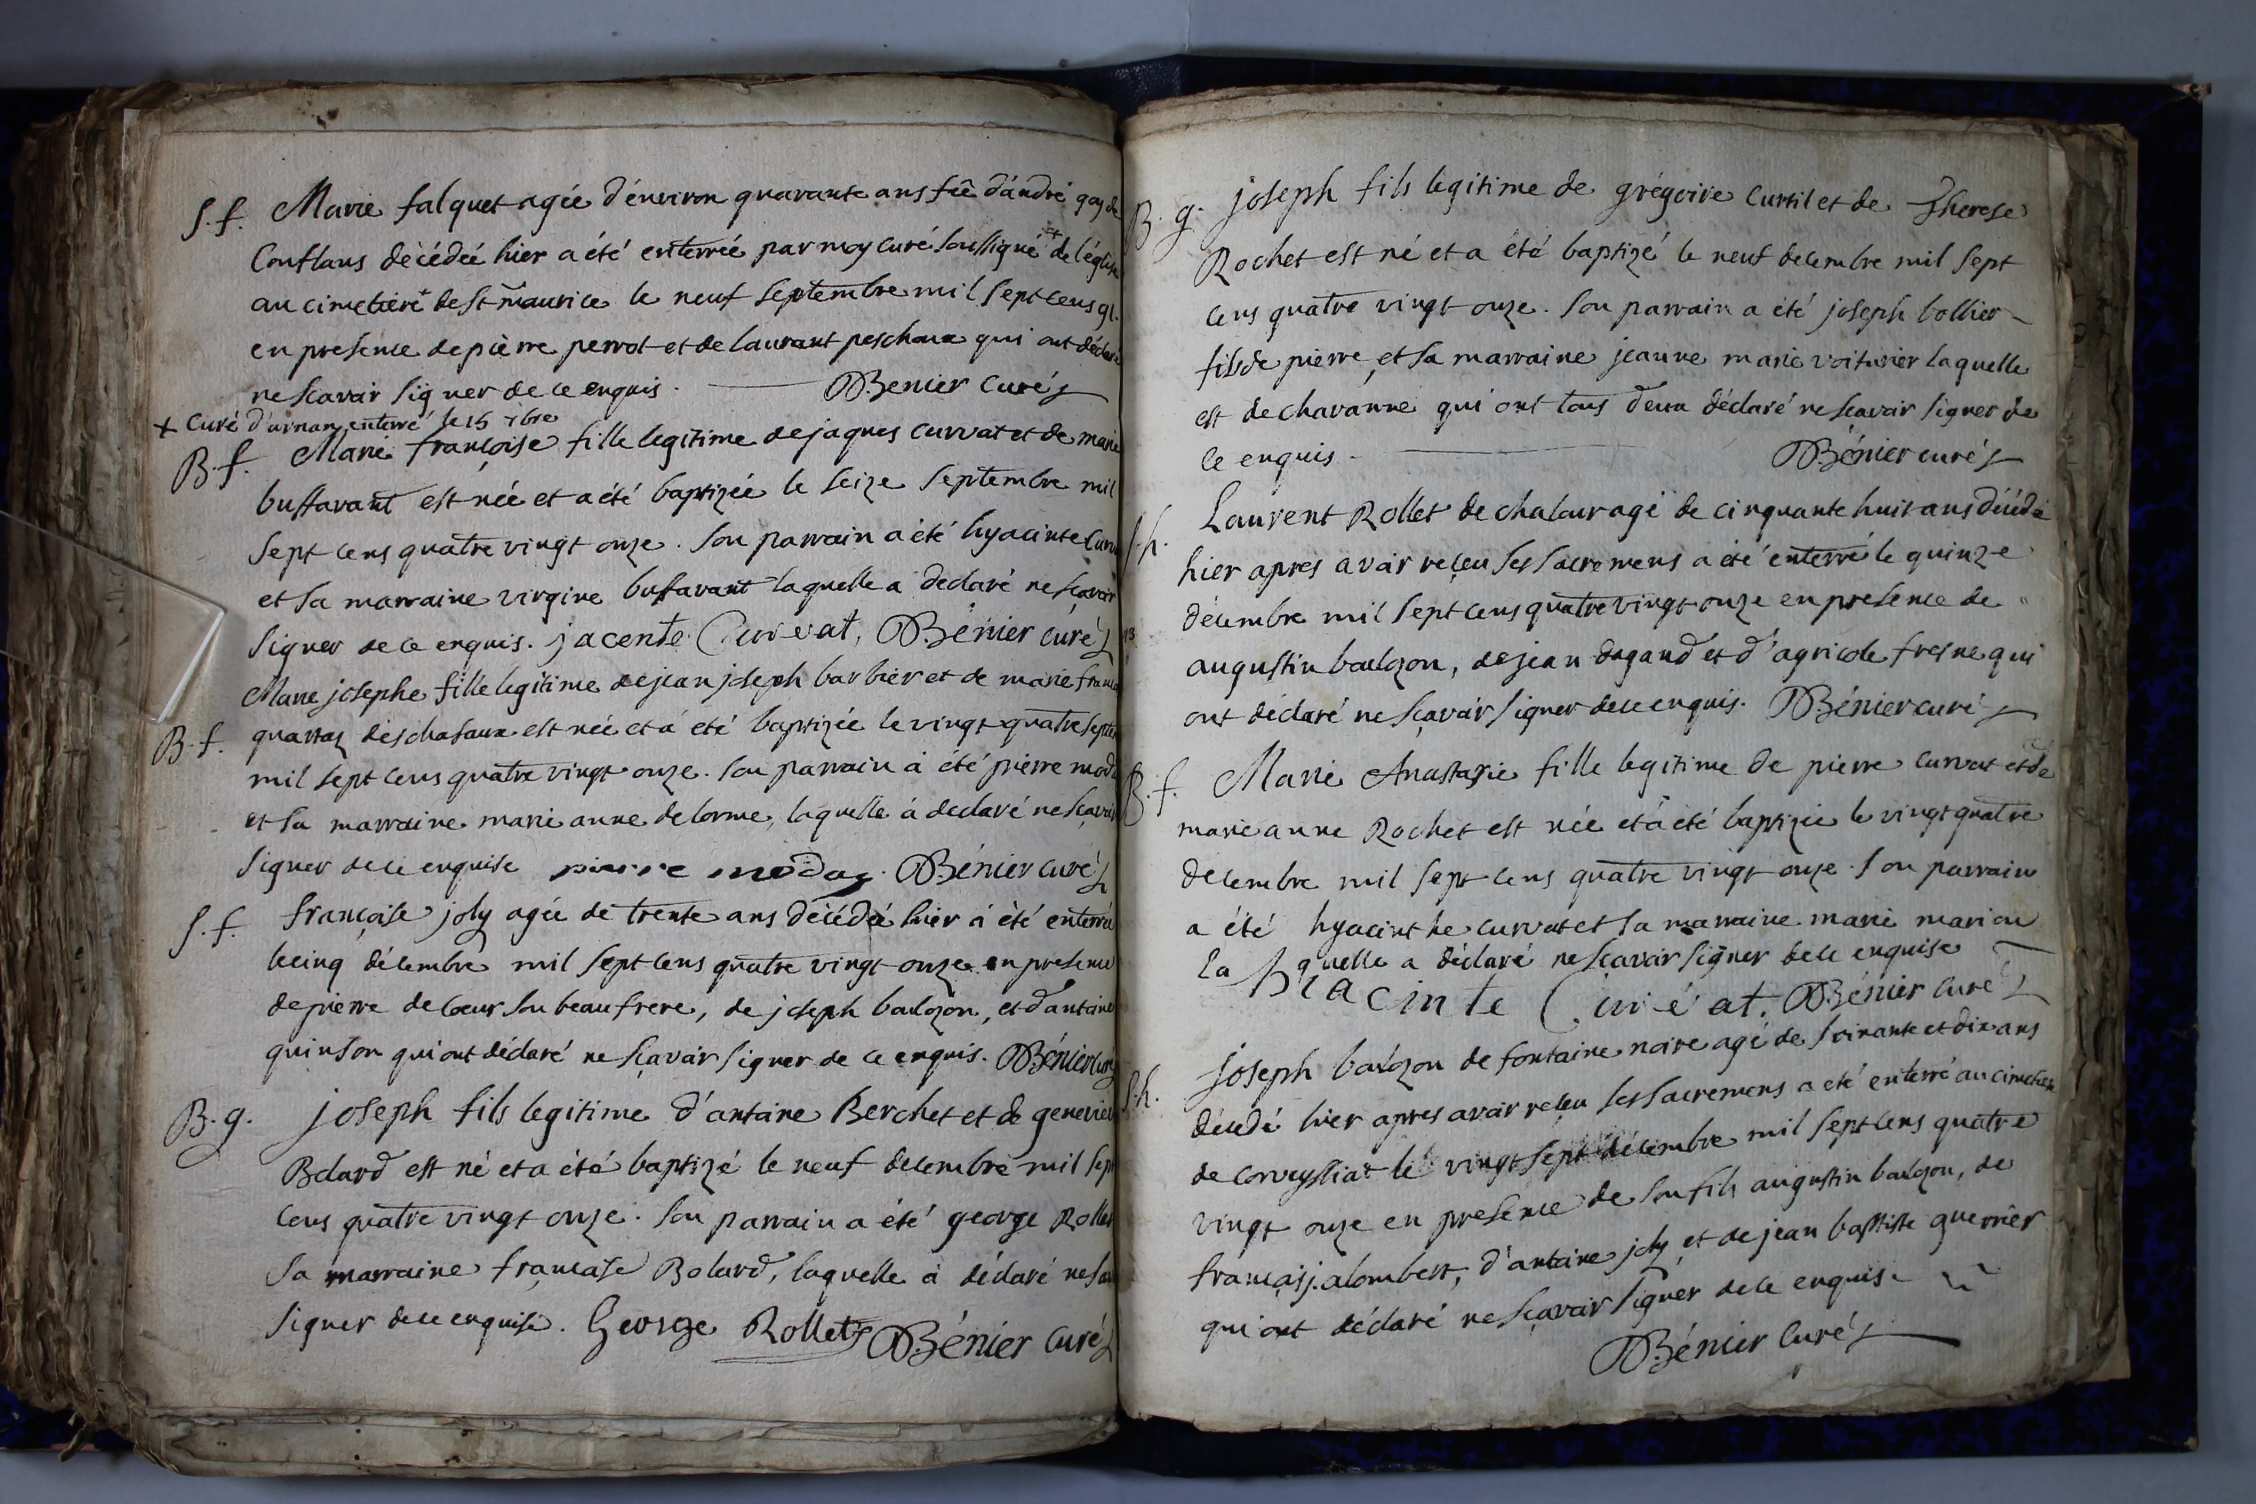 S. f. Marie falquet agée d'environ quarante ans fê d'andré gay de
Conflans décédée hier a été enterrée par moy curé soussigné de l'église
au cimetière + de St maurice le neuf septembre mil sept cens 91.
en presence de pierre perrot et de laurant peschoux qui ont déclaré
ne scavoir signer de ce enquis. Benier curé
+ curé d'arnan enterré le 15 7bre
B. f. Marie françoise fille legitime de jaques curvat et de marie
buffavant est née et a été baptizée le seize septembre mil
sept cens quatre vingt onze. Son parrain a été hyacinte
et sa marraine virgine buffavant laquelle a declaré ne scavoir
signer de ce enquis. jacente Curvat, Bénier curé
Marie josephe fille legitime de jean joseph barbier et de marie
B. f. quarraz des chasaux est née et à été baptizée le vingt quatre
mil sept cens quatre vingt onze. Son parrain à été pierre
et sa marraine marie anne delorme, laquelle à declaré ne sçavoir
signer de ce enquise pierre moday. Bénier curé
S. f. françoise joly agée de trente ans décédée hier à été enterrée
le cinq décembre mil sept cens quatre vingt onze en presence
de pierre de coeur son beaufrere, de joseph baulozon, et d'antoine
quinson qui ont déclaré ne sçavoir signer de ce enquis. Bénier curé
B. g. joseph fils legitime d'antoine Berchet et de
Bolard est né et a été baptizé le neuf decembre mil sept
cens quatre vingt onze. Son parrain a été george Rollet
Sa marraine françoise Bolard, laquelle à déclaré ne
signer de ce enquise. George Rollet Bénier curé
B. g. joseph fils legitime de grégoire curtil et de Therese
Rochet est né et a été baptizé le neuf decembre mil sept
cens quatre vingt onze. Son parrain a été joseph bollier
fils de pierre, et sa marraine jeanne marie voiturier laquelle
est de chavanne qui ont tous deux déclaré ne scavoir signer de
ce enquis. Bénier curé
S. h. Laurent Rollet de chalour agé de cinquante huit ans décédé
hier apres avoir reçeu ses sacremens a été enterré le quinze
décembre mil sept cens quatre vingt onze en presence de
augustin baulozon, de jean dagand et d'agricole fresne qui
ont déclaré ne sçavoir signer de ce enquis. Bénier curé
B. f. Marie Anastasie fille legitime de pierre curvat et de
marie anne Rochet est née et à été baptizée le vingt quatre
decembre mil sept cens quatre vingt onze. Son parrain
a été hyacinthe curvat et sa marraine marie marion
laquelle a déclaré ne sçavoir signer de ce enquise
hiacinte Curvat. Bénier curé
S. h. joseph baulozon de fontaine noire agé de soixante et dix ans
décédé hier apres avoir reçeu ses sacremens a été enterré au cimetiere
de corveyssiat le vingt sept décembre mil sept cens quatre
vingt onze en presence de son fils augustin baulozon, de
françois jalombert, d'antoine joly et de jean baptiste guerrier
qui ont déclaré ne sçavoir signer de ce enquis.
Bénier curé